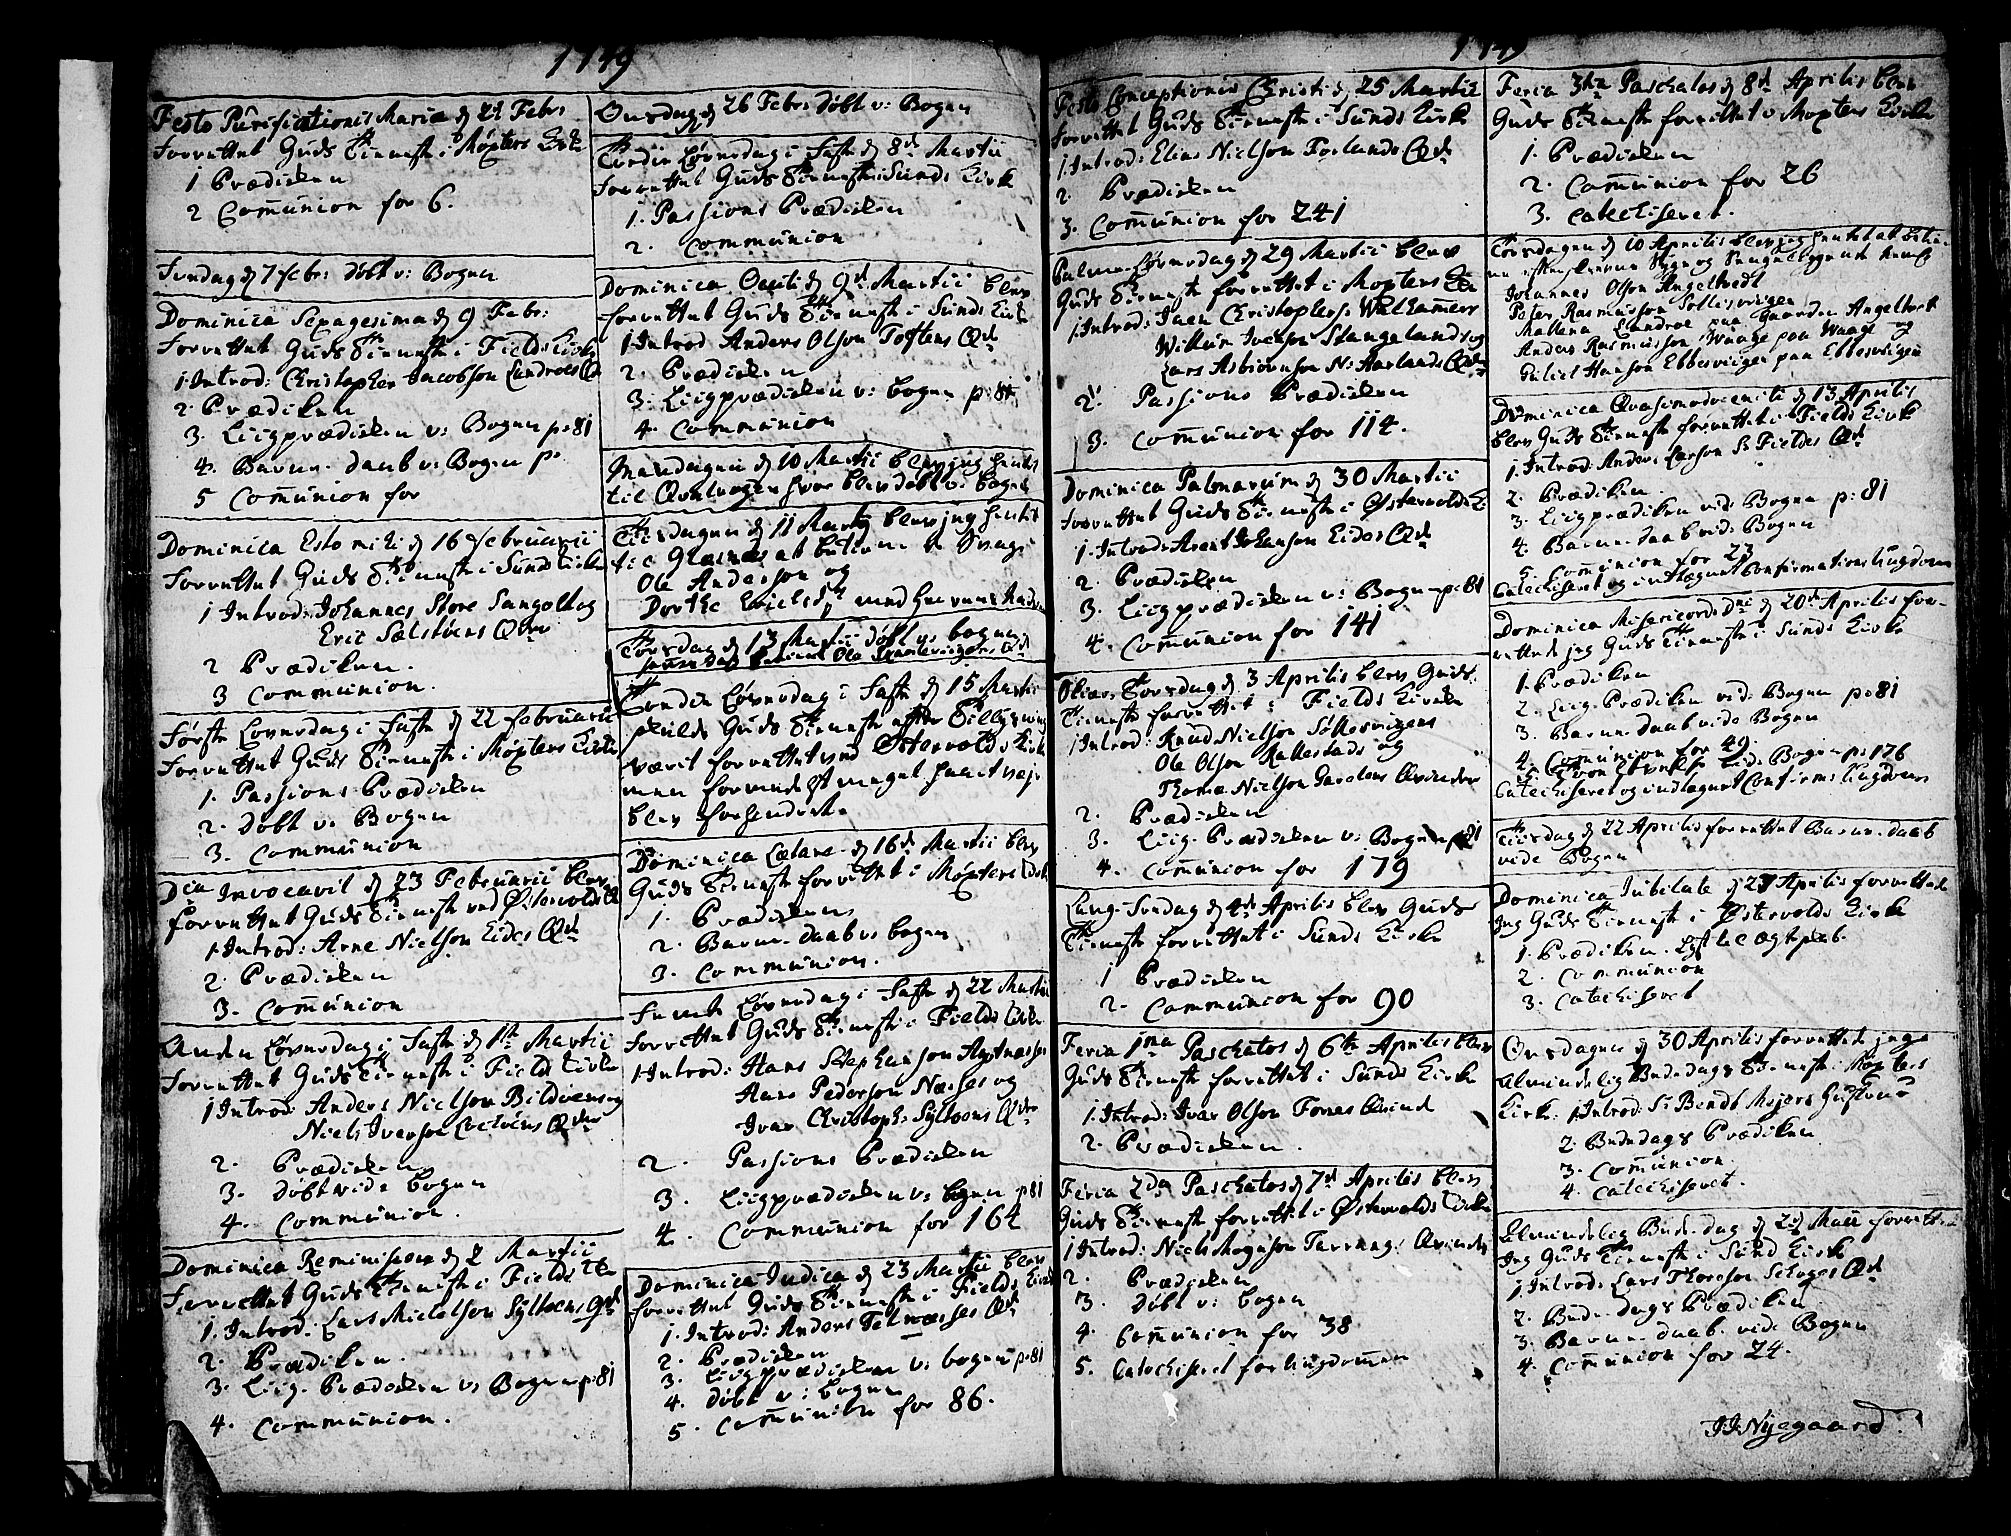 1749
Festo Purificationis Maria d 2d Febr
forrettet Guds Tienneste i Møxters Kirke
1 Prædicken
2 Communion for 6.
d 7 Febr: døbt v: Bogen
Dominica Sexagesima d 9 Febr:
forrettet Guds Tienneste i Fields Kirke
1 Introd: Christopher Jacobson Qd
2. Prædiken
3. Liigprædicken v: Bogen p: 81
4. Barne-daab v: Bogen p:
5 Communion for
Dominica Esto mihi d 16 Februarii
forrettet Guds Tienneste i Sund Kirke
1 Introd: Johannes Store Sangolt og
Eric Qdr
2 Prædiken.
3 Communion.
Første Løverdag i Faste d 22 Februarii
forrettet Guds Tienneste i Møxters Kirke
1. Passions Prædicken
2. Døbt v: Bogen
3. Communion
Dca Invocavit d 23 Februarii blev
forrettet Guds Tienneste ved Østervolds
1 Introd: Arne Nielson Eides Qd
2. Prædicken
3. Communion
Anden Løverdag i Faste d 1st Martii
forrettet Guds Tienneste i Fields Kirke
1 Introd: Anders Nielson og
Niels Iverson Qdr
2. Prædicken
3. Døbt vide Bogen
4. Communion.
Dominica Reminiscere d 2 Martii
forrettet Guds Tienneste i Fields
1. Introd: Lars Michelson Qd
2. Prædiken.
3. Liig-Prædicken v: Bogen p: 81
4. Communion.
Onsdag d 26 Febr: døbt v: Bogen
Tredie Løverdag i Faste d 8d Martii
forrettet Guds Tienneste i Sunds Kirke
1. Passions Prædicken
2. Communion
Dominica Oculi d 9d Martii blev
forrettet Guds Tienneste i Sunds Kirke
1 Introd Anders Olson Toftens Qd
2. Prædicken
3. Liigprædicken v: bogen p: 81
4. Communion
Mandagen d 10 Martii blev jeg hentet
til hvor blev døbt v: bogen
Tiirsdagen d 11 Martij blev jeg hentet
til at betiene de Svage
Ole Anderson og
Dorthe
Torsdag d 13 Martii døbt v: bogen
Fierde Løverdag i Faste d 15 Martii
skulde Guds Tienneste efter
værit forrettet ved Østervolds Kirke
men formedelst meget haart vejr
blev forhindret.
Dominica Lætare d 16d Martii blev
Guds Tienneste forrettet i Møxters
1. Prædicken
2. Barne-daab v: bogen
3. Communion.
Femte Løverdag i Faste d 22 Martii
forrettet Guds Tienneste i Fields Kirke
1. Introd: Hans Stephanson
Hans Pederson Næsses og
Ivar Christoph: Qdr
2. Passions Prædicken
3. Liigprædicken v: bogen p: 81
4. Communion for 164
Dominica Judica d 23 Martii blev
forrettet Guds Tienneste i Fields Kirke
1. Introd: Anders Qd
2. Prædicken
3. Liigprædicken v: bogen p: 81
4. døbt v: bogen
5. Communion for 86.
1749
Festo Conceptionis Christi d 25 Martii
forrettet Guds Tienneste i Sunds Kirke
1. Introd: Elias Nielson Forlands Qd
2. Prædicken
3. Communion for 241
Palme-Løverdag d 29 Martii blev
Guds Tienneste forrettet i Møxters
1 Introd: Jaen Christophers:
Willum Iverson Stangelands og
Lars Asbiørnson N: Harlands Qdr
2. Passions Prædicken
3. Communion for 114.
Dominica Palmarum d 30 Martii
forrettet Guds Tienneste i Østervolds
1. Introd: Arent Johanson Eides Qd
2. Prædicken
3. Liigprædicken v: Bogen p: 81
4. Communion for 141
Skiær-Torsdag d 3 Aprilis blev Guds
Tienneste forrettet i Fields Kirke
1 Introd: Knud Nielson
Ole Olson Rakkestads og
Thomæ Nielson Qvinder
2. Prædicken
3. Liig-Prædicken v: Bogen p: 81
4. Communion for 179
Lang-Fredag d 4d Aprilis blev Guds
Tienneste forrettet i Sunds Kirke
1 Prædicken
2. Communion for 90
Feria 1ma Paschatos d 6te Aprilis blev
Guds Tienneste forrettet i Sunds Kirke
1. Introd: Ivar Olson Qvind
2. Prædicken.
Feria 2da Paschatos d 7d Aprilis blev
Guds Tienneste forrettet i Østervolds Kirke
1 Introd: Niels Mognson Qvinde
2. Prædicken
3. Døbt v: bogen
4. Communion for 38
5. Catechiseret for ungdommen
Feria 3tia Paschatos d 8d Aprilis blev
Guds Tienneste forrettet v: Møxters Kirke
1. Prædicken
2. Communion for 26
3. Catechiseret.
Torsdagen d 10 Aprilis blev jeg hentet at betie-
ne efterskrevne Syge og Sengeliggende neml
Johannes Olson Angeltvedt
Peder Rasmusson
Mallena paa Gaarden Angeltvet
Anders Rasmusson Waage paa Waage og
Hanson Ebbesvigen paa Ebbesvigen
Dominica Qvasimodogeniti d 13 Aprilis
blev Guds Tienneste forrettet i Fields Kirke
1. Introd: Anders Larson S: Fieldes Qd
2. Prædiken.
3. Liigprædiken vid: Bogen p: 81
4. Barne-daab vid: Bogen
5. Communion for 23
Catechiseret og indtegnet Confirmations ungdom
Dominica Misericord: Dni d 20d Aprilis for-
rettede jeg Guds Tienneste i Sunds Kirke
1. Prædiken
2. Liig-Prædiken vid: Bogen p: 81
3. Barne-daab vide Bogen
4. Communion for 49.
5. vide Bogen p: 176
Catechiseret og indtegnet Confirm: Ungdom
Tiirsdag d 22 Aprilis forrettet Barne-daab
vide Bogen
Dominica Jubilate d 27 Aprilis forrettede
Jeg Guds Tienneste i Østervolds Kirke
1. Prædiken.
2. Communion
3. Catechiseret
Onsdagen d 30 Aprilis forrettede jeg
Almindelig Bededags Tienneste i Møxters
Kirke. 1 Introd: Sr Bendt Mejers Hustrue
2. Bededags Prædiken
3. Communion.
4. Catechiseret.
Almindelig Bede-dag d 2d Maii forrettede
Jeg Guds Tienneste i Sund Kirke
1 Introd: Lars Thoreson Qd
2. Bede-dags Prædiken
3. Barne-daab vide Bogen
4. Communion for 24.
JJNyegaard.